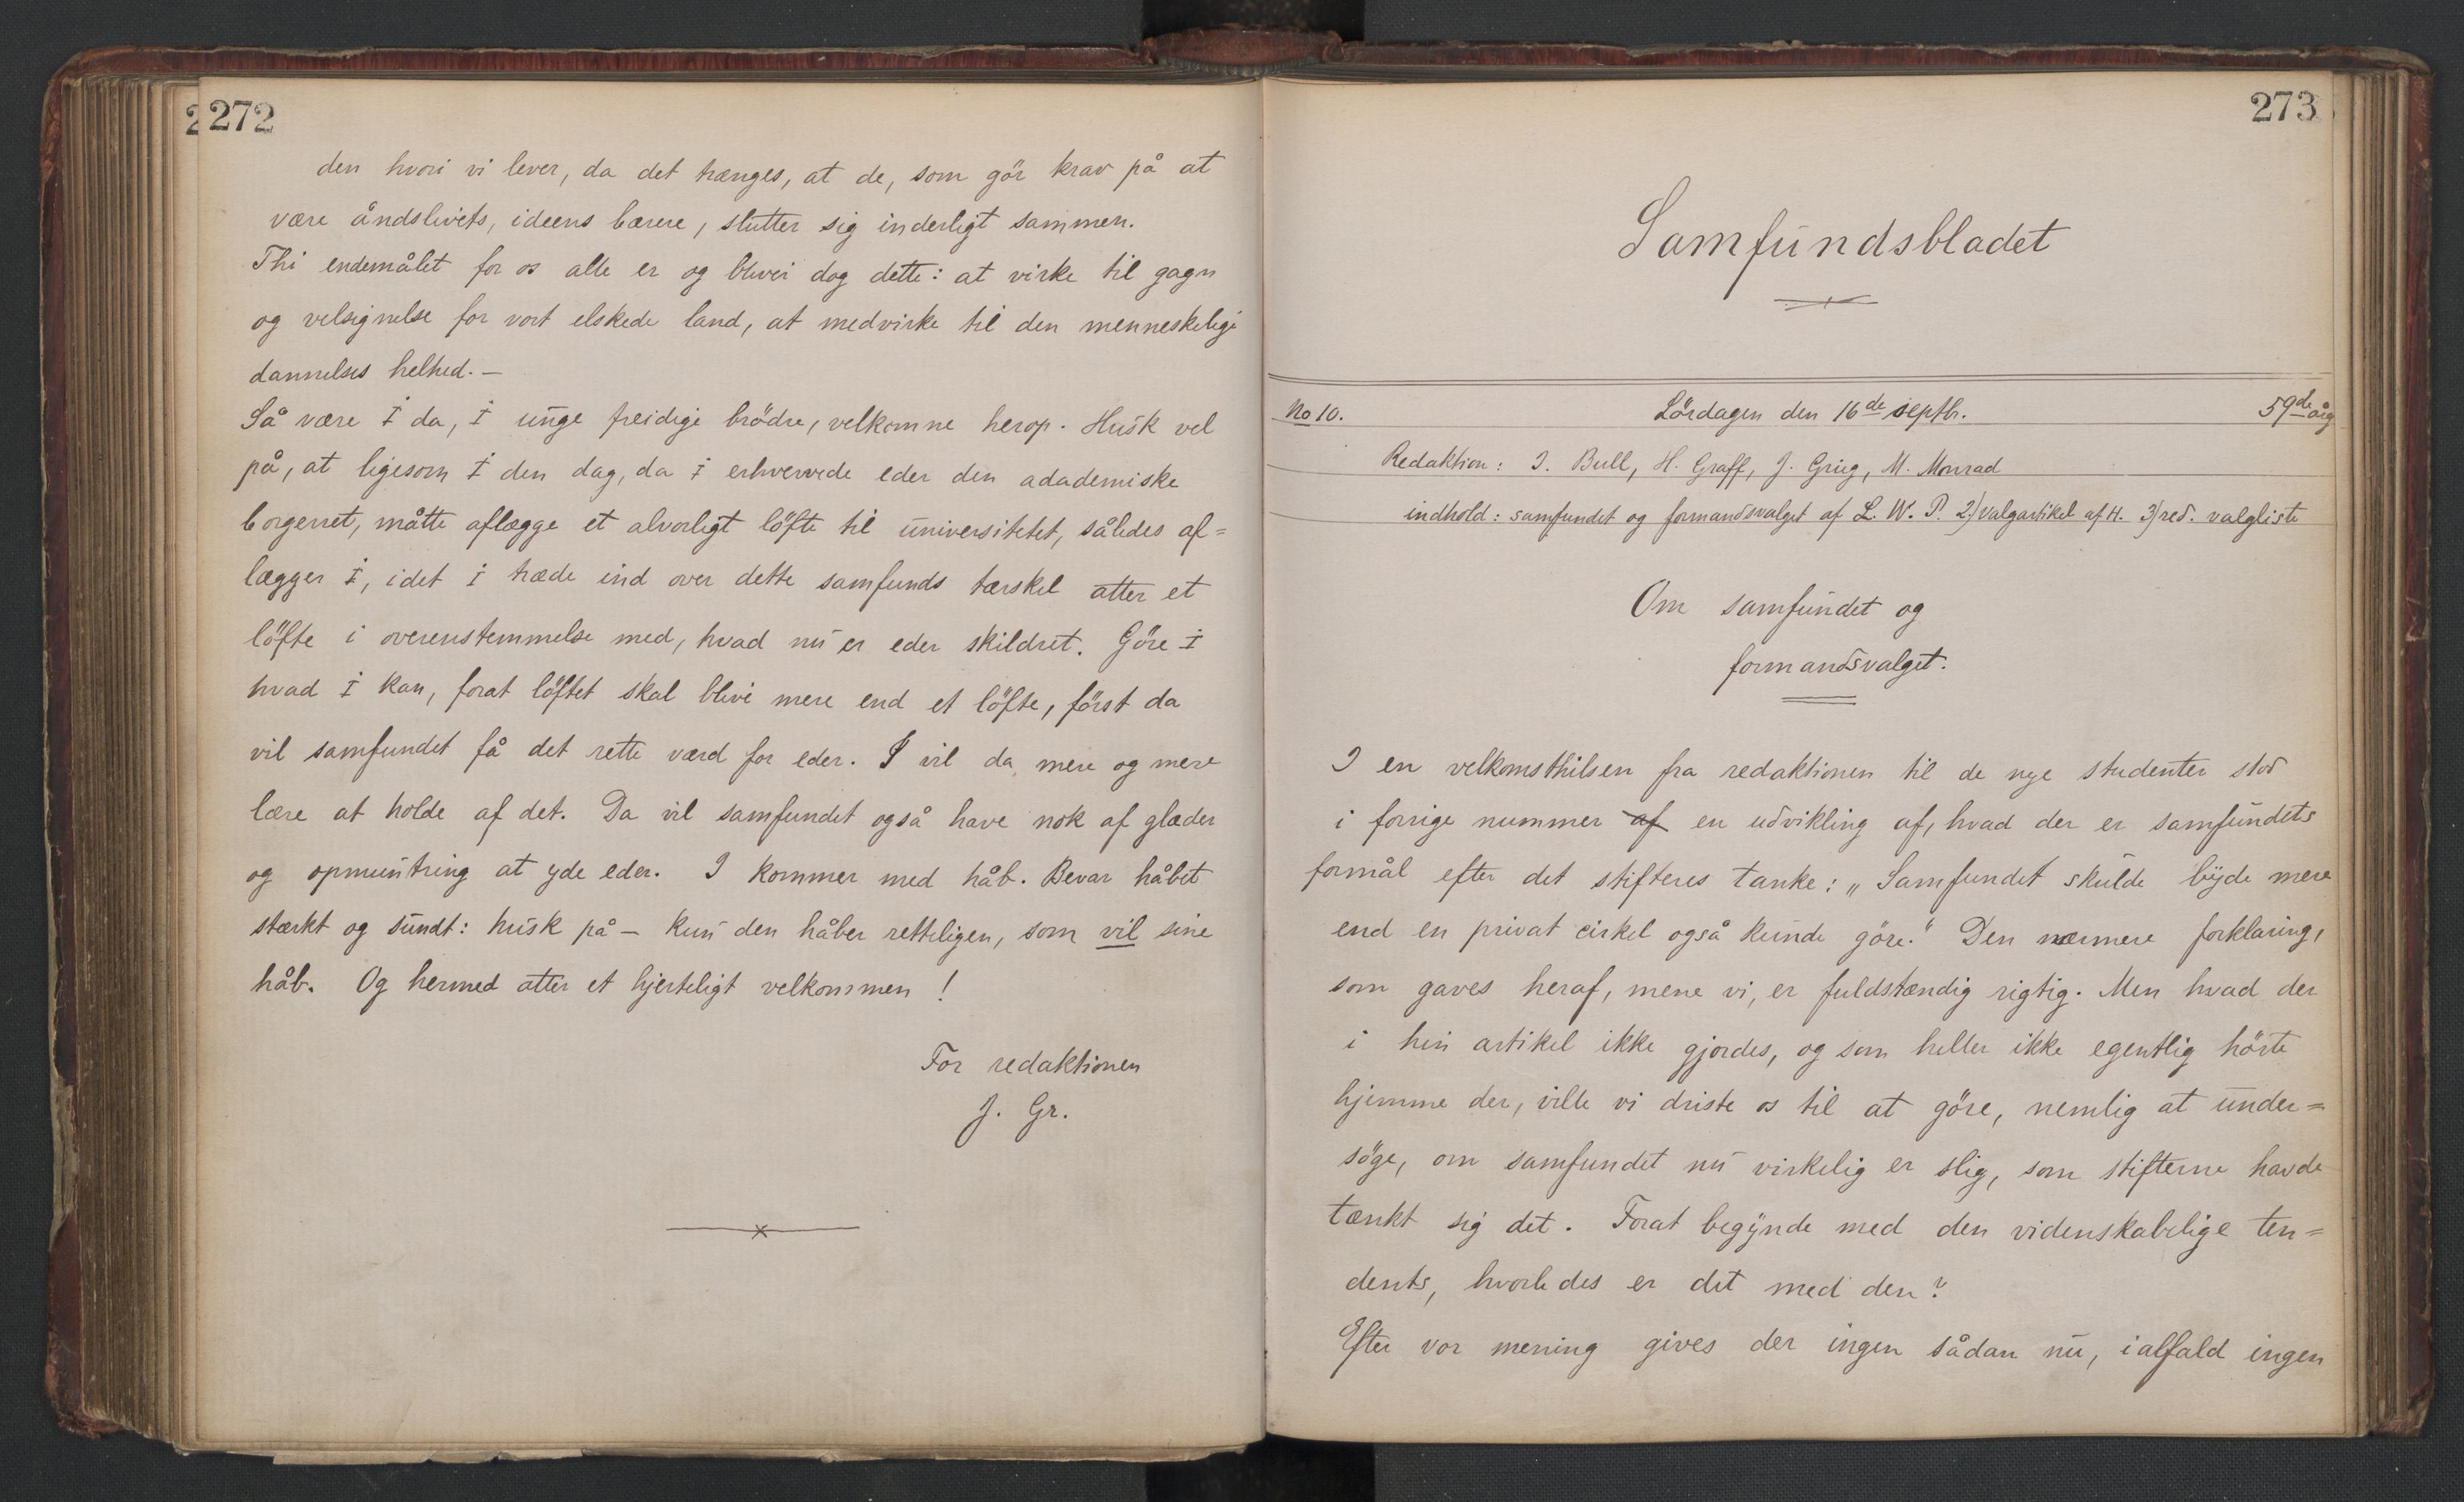 272
den hvori vi lever, da det trænges, at de, som gör krav på at
være åndslivets, ideens bærere, slutter sig inderligt sammen.
Thi endemålet for os alle er og bliver dog dette: at virke til gagn
og velsignelse for vort elskede land, at medvirke til den menneskelige
dannelses helhed. —
Så være I da, I unge freidige brödre, velkomne herop. Husk vel
på, at ligesom I den dag, da I erhvervede eder den adademiske
borgerret, måtte aflægge et alvorligt löfte til universitetet, således af=
lægger I, idet I træde ind over dette samfunds tærskel atter et
löfte i overenstemmelse med, hvad nu er eder skildret. Göre I
hvad I kan, forat löftet skal blive mere end et löfte, först da
vil samfundet få det rette værd for eder. I vil da mere og mere
lære at holde af det. Da vil samfundet også have nok af glæder
og opmuntring at yde eder. I kommer med håb. Bevar håbet
stærkt og sundt: husk på — kun den håber retteligen, som vil sine
håb. Og hermed atter et hjerteligt velkommen!
For redaktionen
J. Gr.
273
Samfundsbladet
No 10. Lördagen den 16de septbr. 59de årg
Redaktion: I. Bull, H. Graff, J. Grieg, M. Monrad
indhold: samfundet og formandsvalget af L. W. P. 2) valgartikel af H. 3) red. valgliste
Om samfundet og
formandsvalget.
I en velkomsthilsen fra redaktionen til de nye studenter stod
i forrige nummer af en udvikling af, hvad der er samfundets
formål efter det stifteres tanke: „Samfundet skulde byde mere
end en privat cirkel også kunde göre." Den nærmere forklaring,
som gaves heraf, mene vi, er fuldstændig rigtig. Men hvad der
i hin artikel ikke gjordes, og som heller ikke egentlig hörte
hjemme der, ville vi driste os til at göre, nemlig at under=
söge, om samfundet nu virkelig er slig, som stifterne havde
tænkt sig det. Forat begynde med den videnskabelige ten=
dents, hvorledes er det med den?
Efter vor mening gives der ingen sådan nu, ialfald ingen